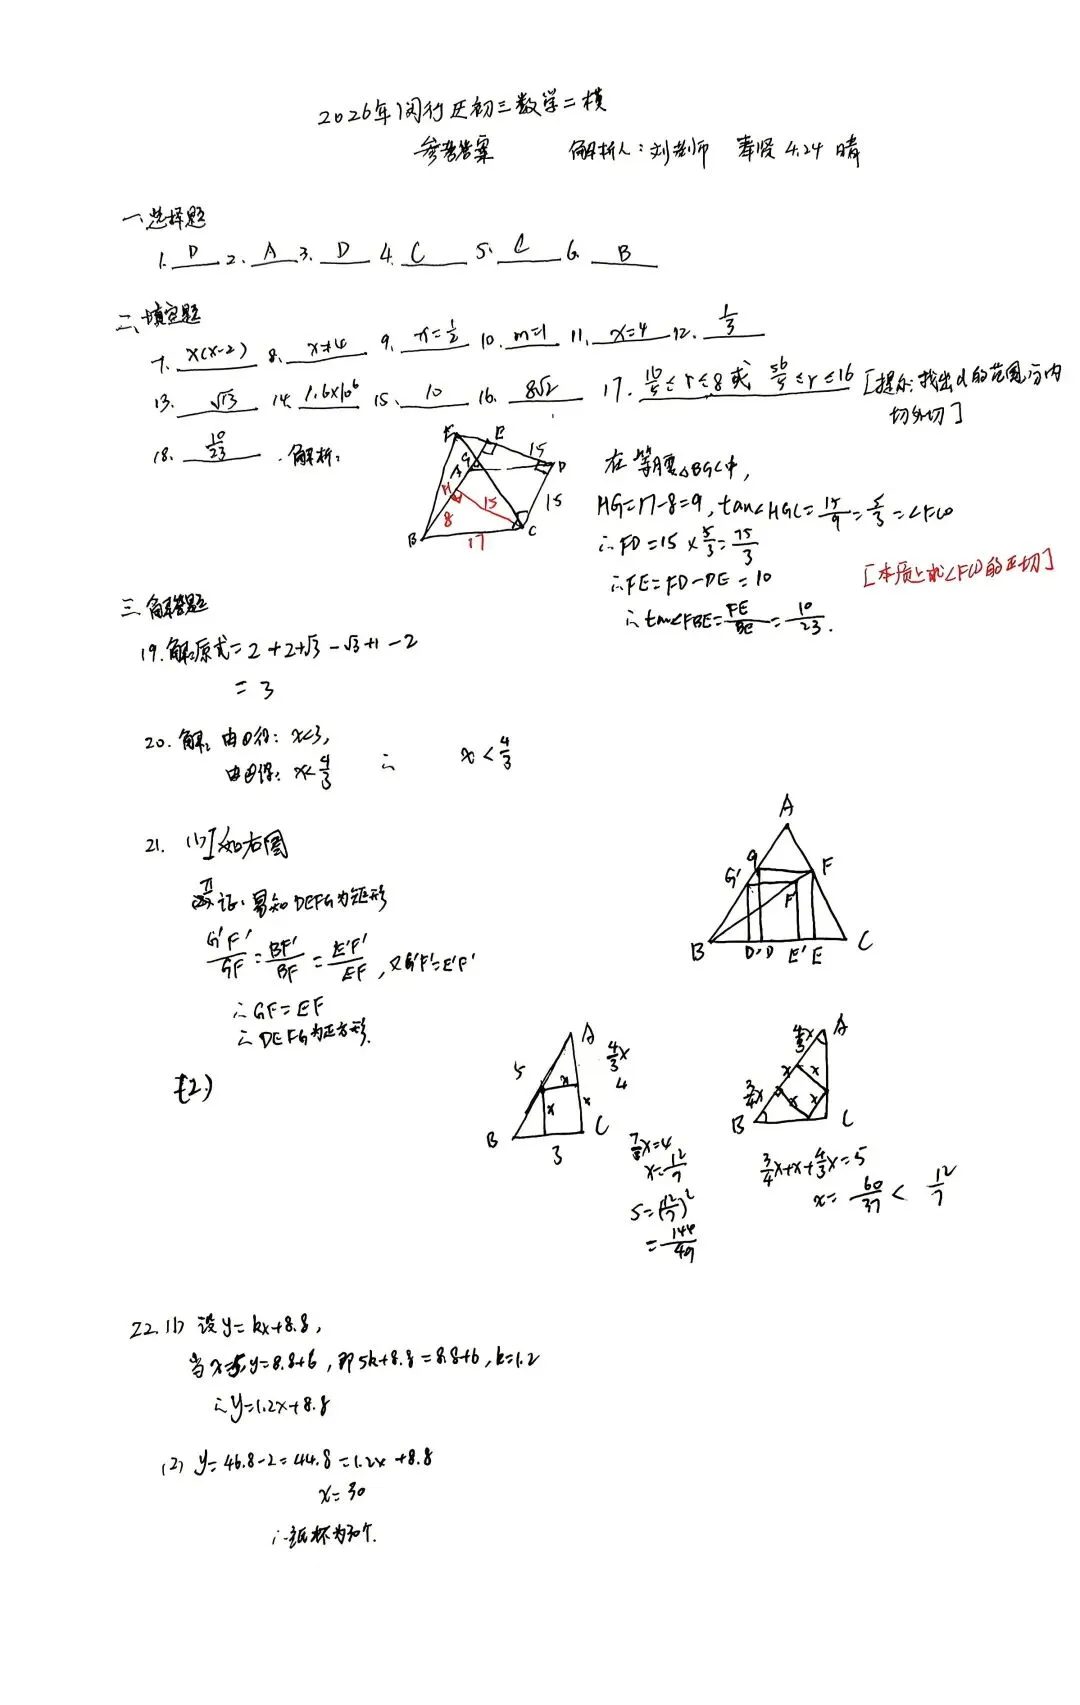 2026年闵行区初三数学二模
参考答案 解析人：刘老师 奉贤 4.24 晴
一、选择题
1. D 2. A 3. D 4. C 5. C 6. B
二、填空题
7. x(x-2) 8. x≠4 9. x=1/2 10. m=1 11. x=4 12. 1/3
13. √13 14. 1.6×10⁶ 15. 10 16. 8√2 17. 16/5≤r≤8或 56/5≤r≤16 [提示:找出d的范围,分内
切外切]
18. 10/23 . 解析:
在等腰△BGC中,
HG=17-8=9, tan∠HGC=15/9=5/3=∠FCD
∴FD=15×5/3=75/3
∴FE=FD-DE=10
[本质上求∠FCD的正切]
∴tan∠FBE=FE/BE=10/23.
F E G D H B C
15 15 15 8 17
三、解答题
19. 解:原式=2+2+√3-√3+1-2
=3
20. 解: 由①得: x<3,
由②得: x<4/3 ∴ x<4/3
21. (1) 如右图
证: 易知DEFG为矩形
G'F'/GF=BF'/BF=E'F'/EF, 又G'F'=E'F'
∴GF=EF
∴DEFG为正方形.
A G F G' F' B D' D E' E C
(2)
A 5 4/3x 4 x x x B C 3
7/3x=4
x=12/7
S=(12/7)²
=144/49
A 4/3x x x x x 3/4x B C
3/4x+x+4/3x=5
x=60/37 < 12/7
22. (1) 设y=kx+8.8,
当x=5,y=8.8+6, 即5k+8.8=8.8+6, k=1.2
∴y=1.2x+8.8
(2) y=46.8-2=44.8=1.2x+8.8
x=30
∴纸杯为30个.